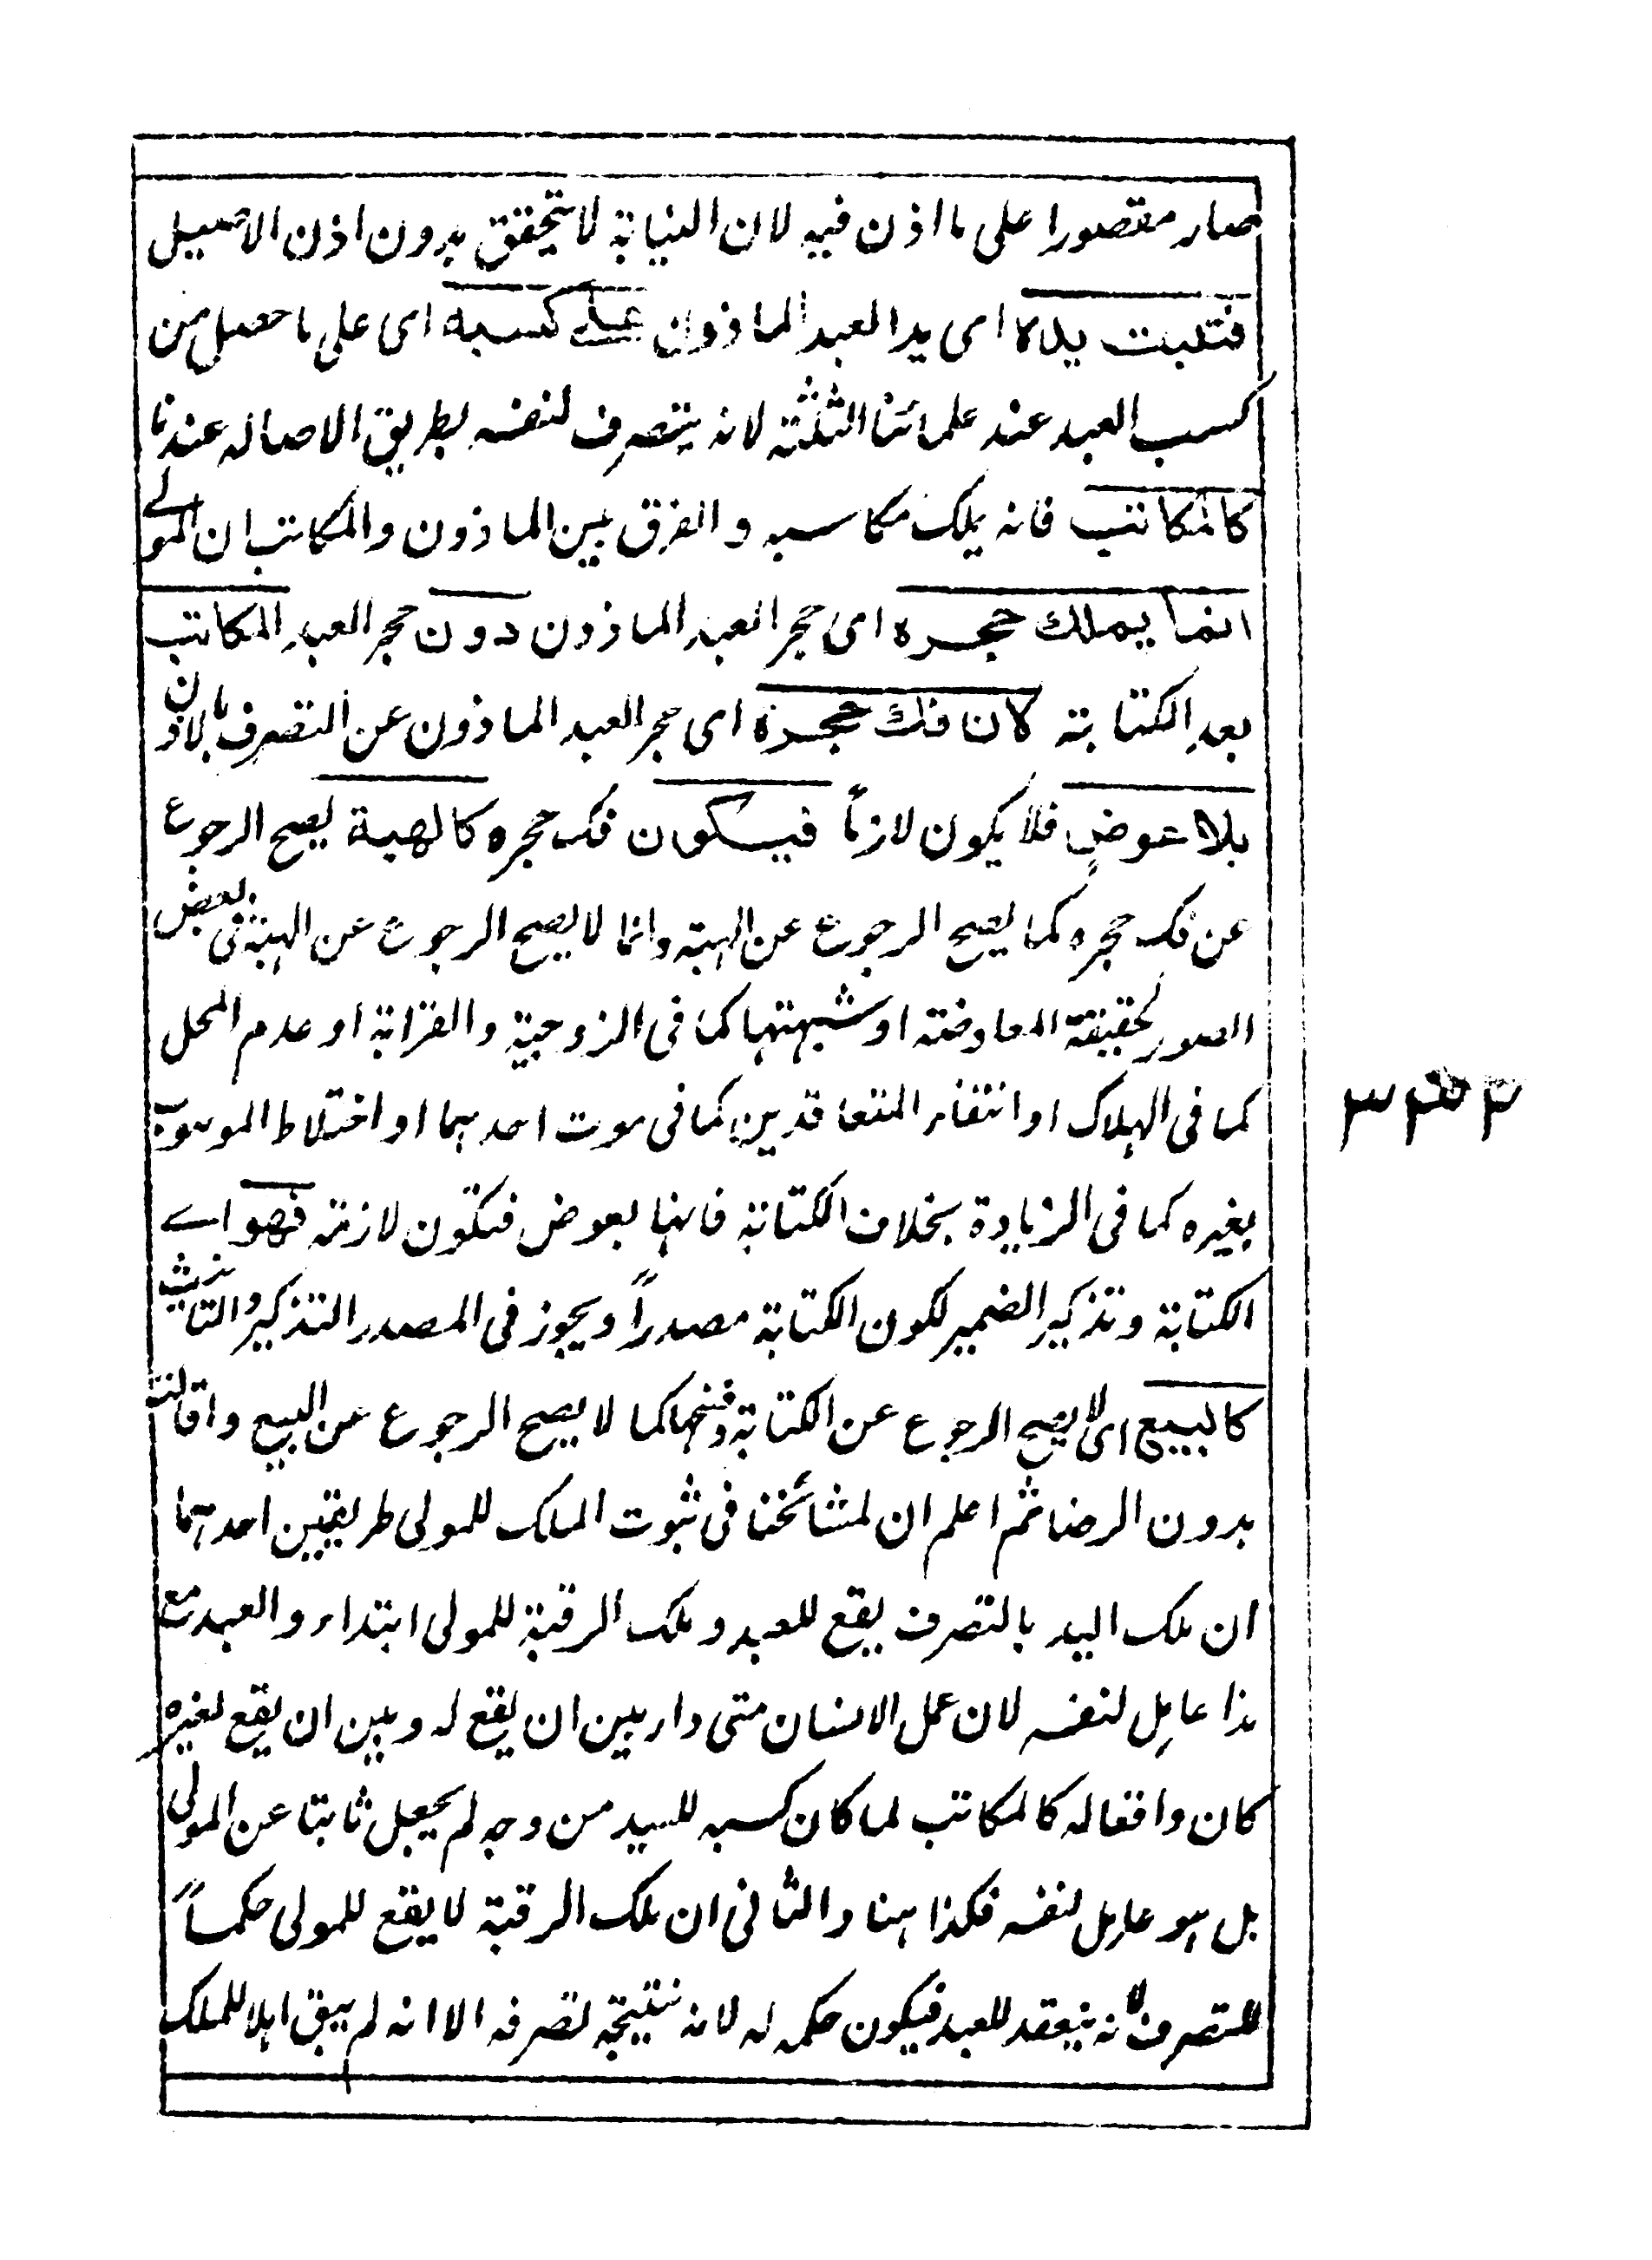 صار مقصورا على ما اذن فيه لان النيابة لا يتحقق بدون اذن الاصيل
فتثبت يده اى يد العبد الماذون على كسبه اى على ما حصل من
كسب العبد عند علمائنا الثلثة لانه يتصرف لنفسه بطريق الاصالة عندنا
كالمكاتب فانه يملك مكاسبه والفرق بين الماذون والمكاتب ان المولى
انما يملك حجره اى حجر العبد الماذون دون حجر العبد المكاتب
بعد الكتابة لان فك حجره اى حجر العبد الماذون عن التصرف بالاذن
بلا عوضٍ فلا يكون لازماً فيكون فك حجره كالهبة يصح الرجوع
عن فك حجره كما يصح الرجوع عن الهبة وانما لا يصح الرجوع عن الهبة فى بعض
الصور لحقيقة المعاوضة او شبهتها كما فى الزوجية والقرابة او عدم المحل
كما فى الهلاك او انتفاء المتعاقدين كما فى موت احدهما او اختلاط الموهوب
بغيره كما فى الزيادة بخلاف الكتابة فانها بعوض فتكون لازمة فهو اى
الكتابة وتذكير الضمير لكون الكتابة مصدراً ويجوز فى المصدر التذكير والتانيث
كالبيع اى لا يصح الرجوع عن الكتابة وفسخها كما لا يصح الرجوع عن البيع واقالته
بدون الرضا ثم اعلم ان لمشائخنا فى ثبوت الملك للمولى طريقين احدهما
ان ملك اليد بالتصرف يقع للعبد وملك الرقبة للمولى ابتداء والعبد مع
هذا عامل لنفسه لان عمل الانسان متى دار بين ان يقع له وبين ان يقع لغيره
كان واقعا له كالمكاتب لما كان كسبه للسيد من وجه لم يجعل ثابتا عن المولى
بل هو عامل لنفسه فكذا هنا والثانى ان ملك الرقبة لا يقع للمولى حكماً
للتصرف لانه ينعقد للعبد فيكون حكمه له لانه نتيجة تصرفه الا انه لم يبق اهلا للملك